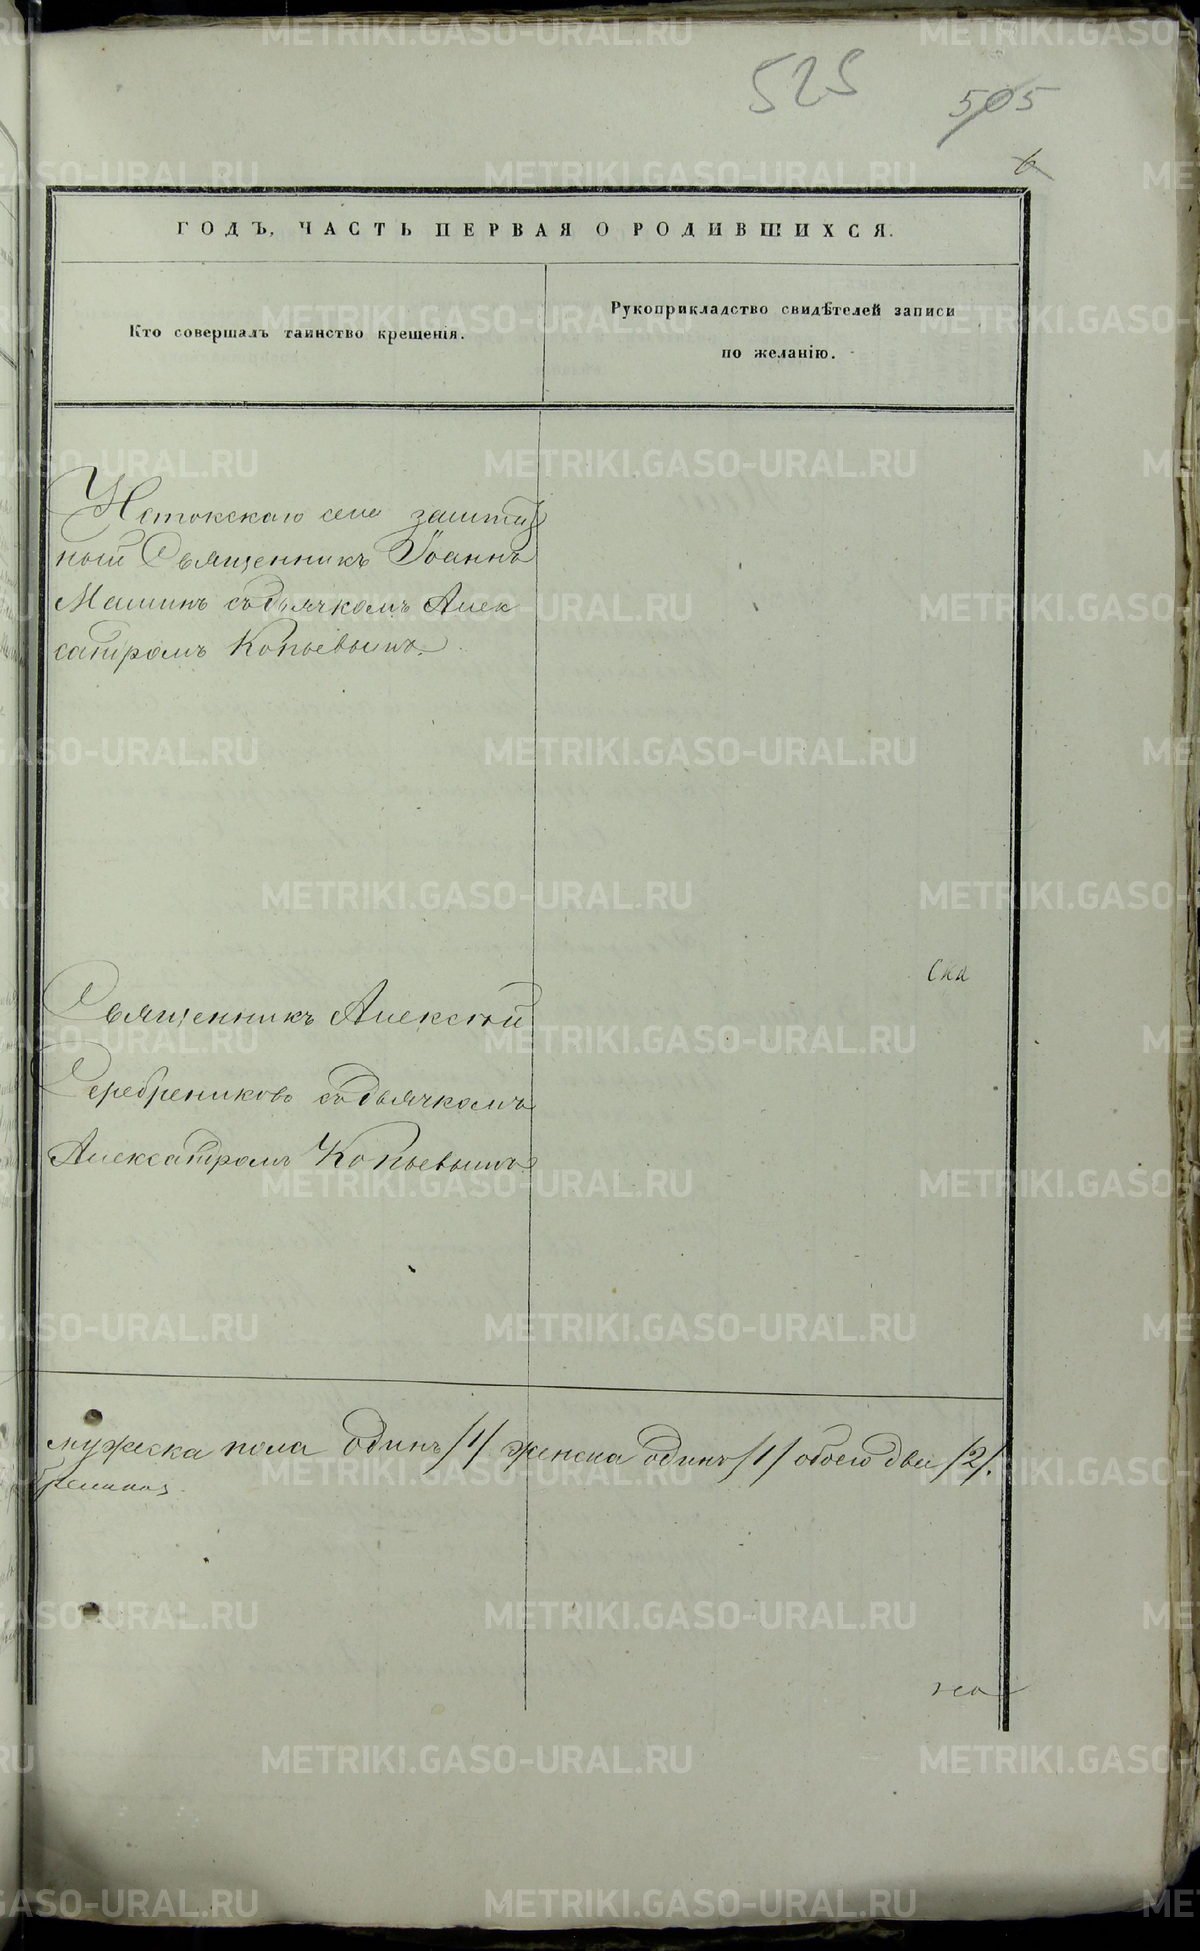 525
505
6
ГОДЪ, ЧАСТЬ ПЕРВАЯ О РОДИВШИХСЯ.
Кто совершалъ таинство крещенія.
Рукоприкладство свидѣтелей записи
по желанію.
Истокскаго села заштат
ный Священникъ Іоаннъ
Машинъ съ дьячкомъ Алек
сандромъ Копьевымъ.
ска
Священникъ Алексѣй
Серебрениковъ съ дьячкомъ
Александромъ Копьевымъ
мужеска пола одинъ /1/ женска одинъ /1/ обоего два /2/.
METRIKI.GASO-URAL.RU